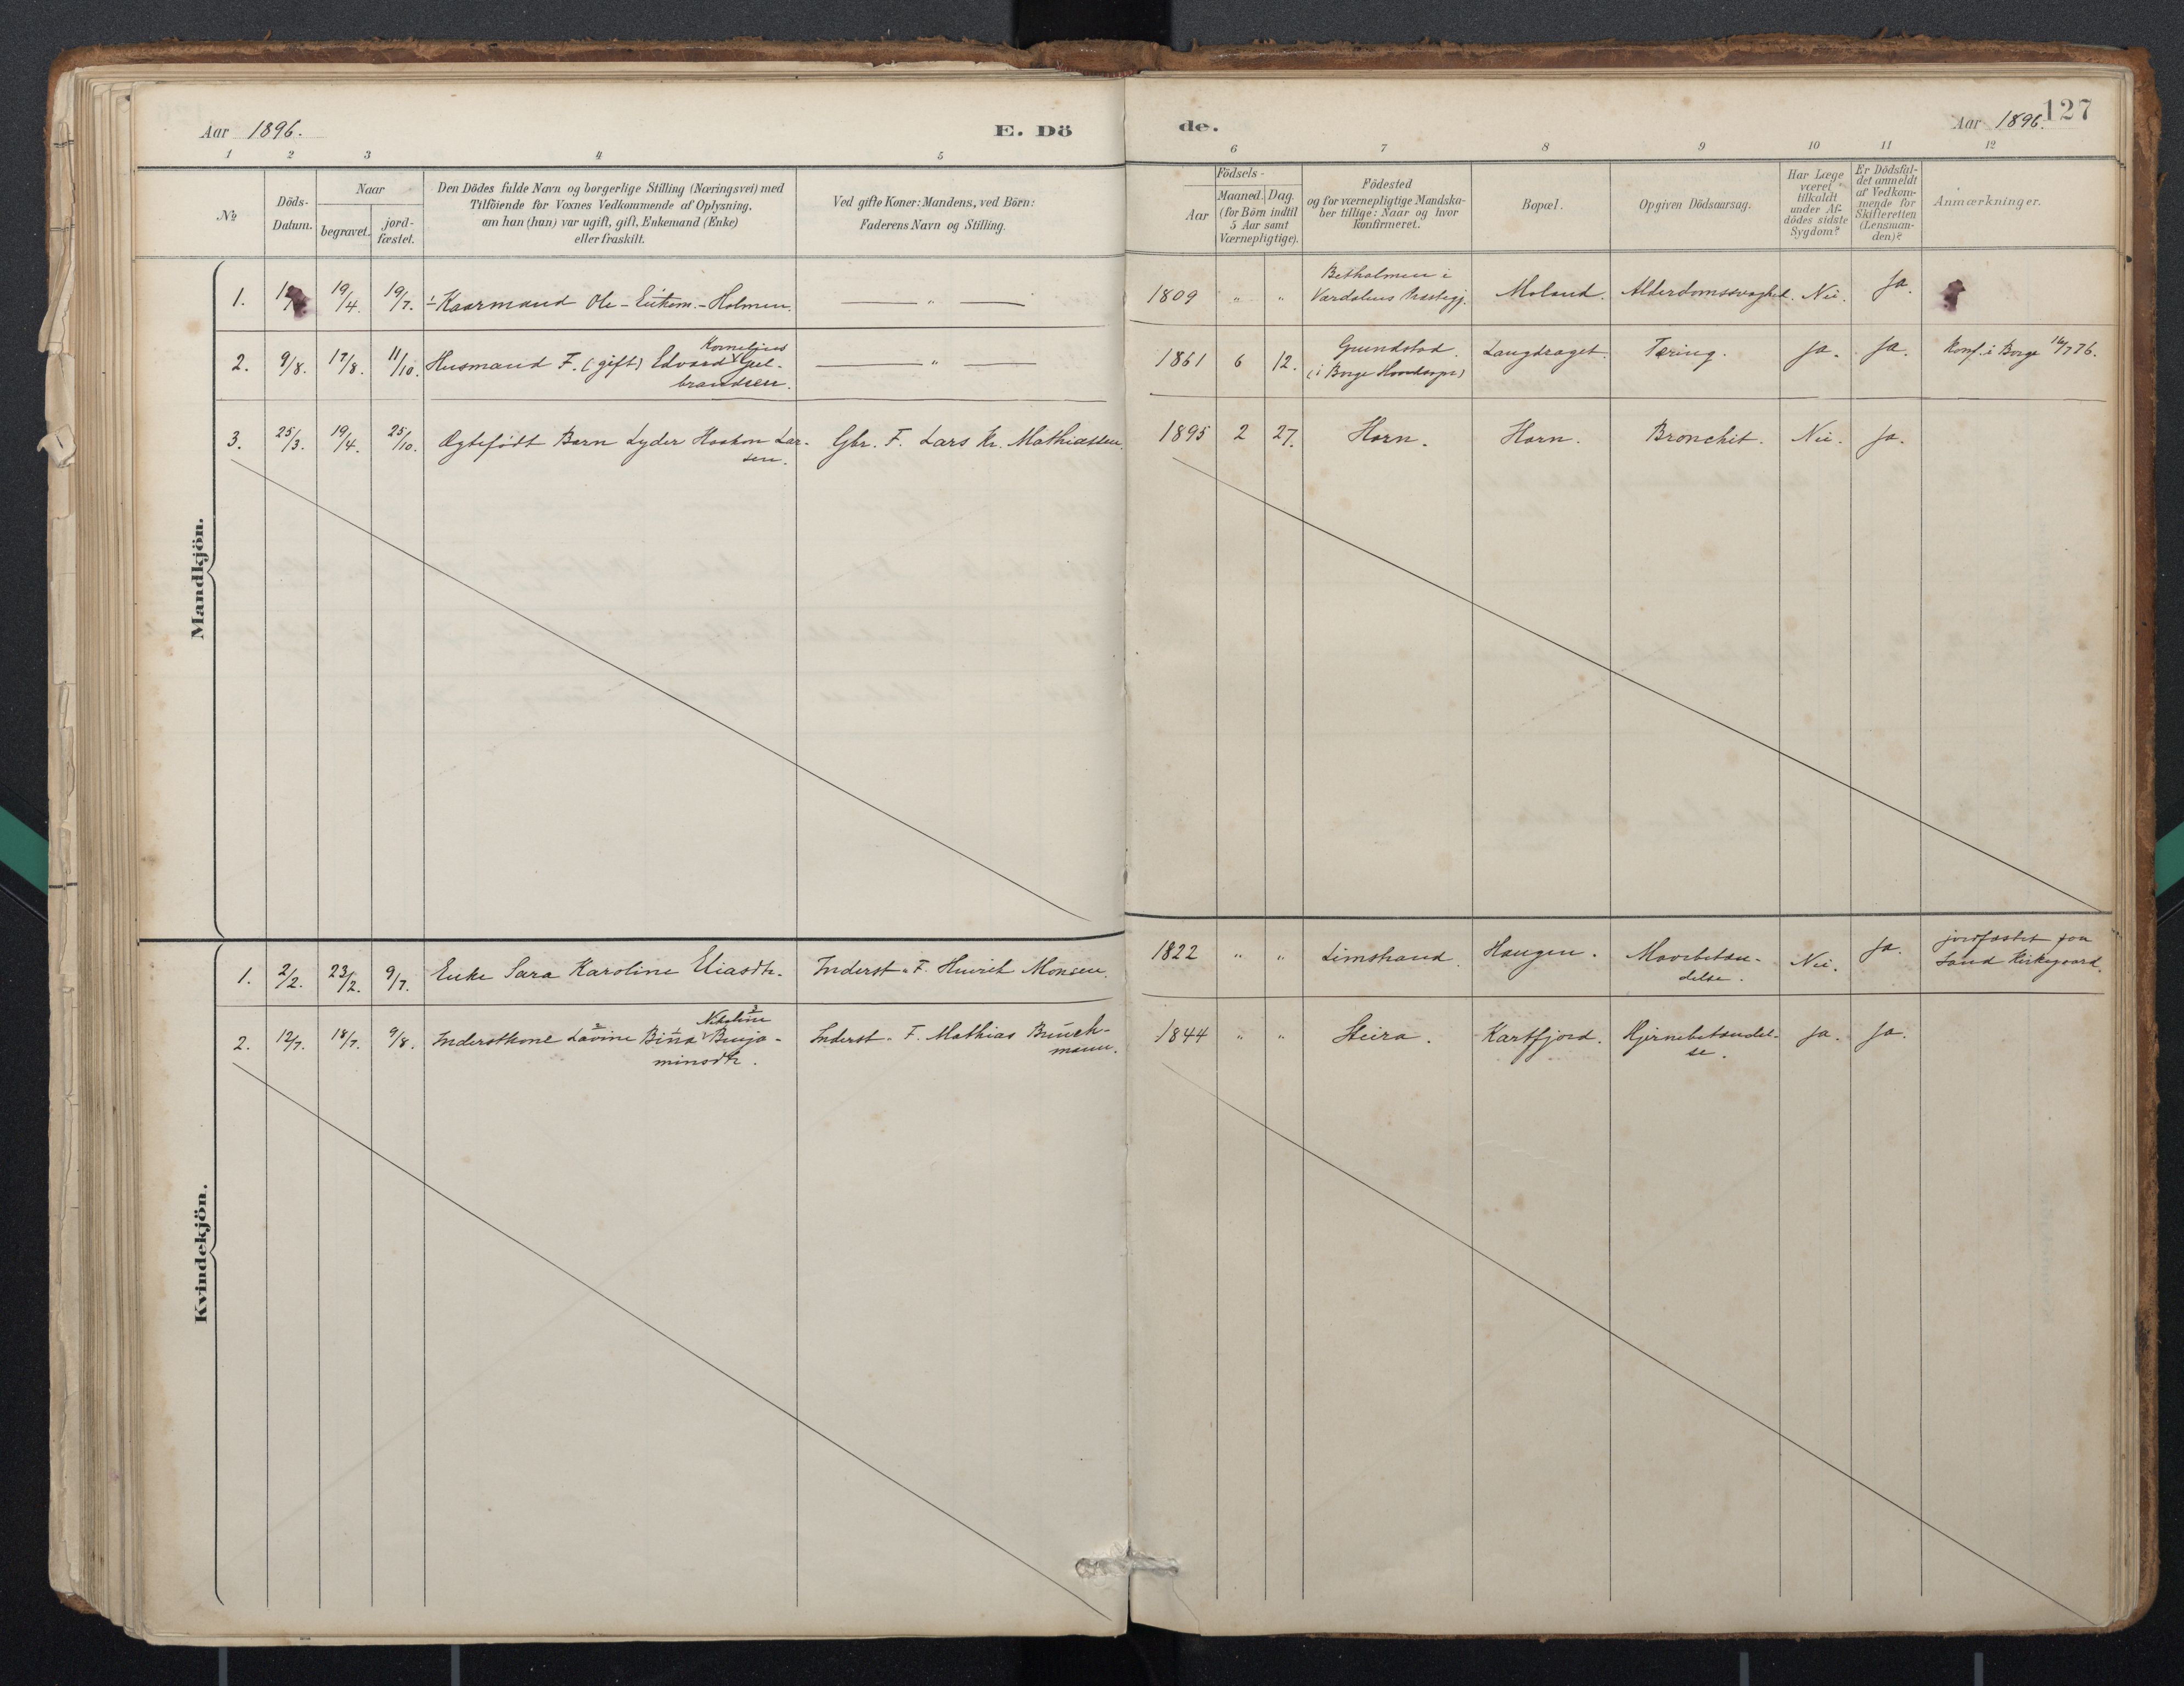 Aar 1896.
E. Dö
de.
Aar 1896.
127
1 2 3 4 5 6 7 8 9 10 11 12
№
Döds-
Datum.
Naar
begravet.
jord-
fæstet.
Den Dödes fulde Navn og borgerlige Stilling (Næringsvei) med
Tilföiende for Voxnes Vedkommende af Oplysning,
om han (hun) var ugift, gift, Enkemand (Enke)
eller fraskilt.
Ved gifte Koner: Mandens, ved Börn:
Faderens Navn og Stilling.
Aar
Födsels-
Maaned. Dag.
(for Börn indtil
5 Aar samt
Værnepligtige).
Födested
og for værnepligtige Mandska-
ber tillige: Naar og hvor
konfirmeret.
Bopæl.
Opgiven Dödsaarsag.
Har Læge
været
tilkaldt
under Af-
dödes sidste
Sygdom?
Er Dödsfal-
det anmeldt
af Vedkom-
mende for
Skifteretten
(Lensman-
den)?
Anmærkninger.
Mandkjön.
1. 19/4. 19/7. Kaarmand Ole - Enkem. - Holmen. — " — 1809 " " Betholmen i
Værdalens Præstegj. Moland. Alderdomssvaghed. Nei. Ja.
2. 9/8. 17/8. 11/10. Husmand F. (gift) Edvard Kornelius Gul-
brandsen. — " — 1861 6 12. Grundstad.
(i Borge ) Langdraget. Tæring. Ja. Ja. Konf. i Borge 16/7 76.
3. 25/3. 19/4. 25/10. Ægtefødt Barn Lyder Haakon Lar-
sen. Gbr. F. Lars Kr. Mathiassen. 1895 2 27. Horn. Horn. Bronchit. Nei. Ja.
Kvindekjön.
1. 2/2. 23/2. 9/7. Enke Sara Karoline Eliasdtr. Inderst " F. Hinrik Monsen. 1822 " " Limstrand. Haugen. Mavebetæn-
delse. Nei. Ja. jordfæstet paa
Sand Kirkegaard.
2. 12/7. 18/7. 9/8. Inderstkone Lavine Bina Nikoline Benja-
minsdtr. Inderst " F. Mathias Brinch-
mann. 1844 " " Steira. Kartfjord. Hjernebetændel-
se. Ja. Ja.